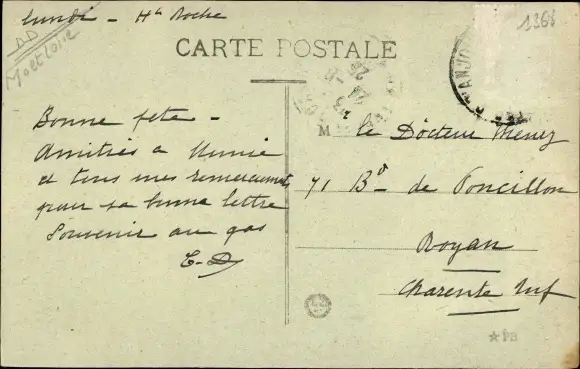 Lundi - Hte Roche
DD
M et Loire
1368
CARTE POSTALE
D'ANJOU
Bonne fête -
Amitiés à Nunie
et tous mes remerciements
pour sa bonne lettre
Souvenir au gas
E-D
M le Docteur Menez
71 Bd de Poncillon
Royan
Charente Inf
PB